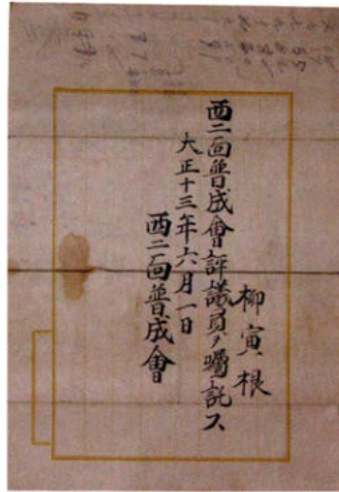 柳寅根
西二面普成會評議員ノ囑託ス
大正十三年六月一日
西二面普成會